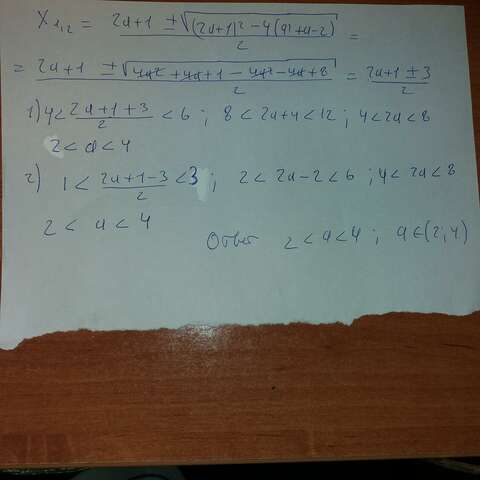 X₁,₂ = (2a+1 ±√((2a+1)² − 4(a²+a−2)))/2 =
= (2a+1 ±√(4a² + 4a + 1 − 4a² − 4a + 8))/2 = (2a+1 ± 3)/2
1) 4 < (2a+1+3)/2 < 6 ; 8 < 2a+4 < 12 ; 4 < 2a < 8
2 < a < 4
2) 1 < (2a+1−3)/2 < 3 ; 2 < 2a−2 < 6 ; 4 < 2a < 8
2 < a < 4
Ответ 2 < a < 4 ; a ∈ (2; 4)